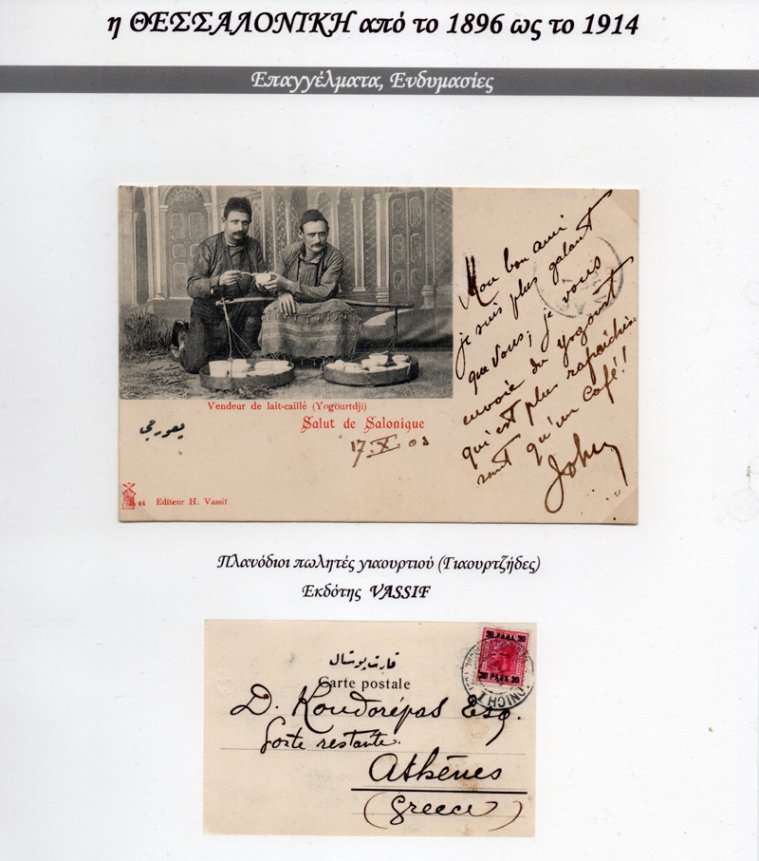 η ΘΕΣΣΑΛΟΝΙΚΗ από το 1896 ως το 1914
Επαγγέλματα, Ενδυμασίες
Mon bon ami
je suis plus galant
que vous; je vous
envoie du yogourt
qui est plus rafraichis-
sant qu'un café!
John
Vendeur de lait-caillé (Yogourtdji)
Salut de Salonique
17. X. 03
يوغورتجى
44 Editeur H. Vassif
Πλανόδιοι πωλητές γιαουρτιού (Γιαουρτζήδες)
Εκδότης VASSIF
20 PARA 20
20 PARA 20
قارت پوستال
Carte postale
D. Koudorépas Esq.
Poste restante.
Athènes
(Greece)